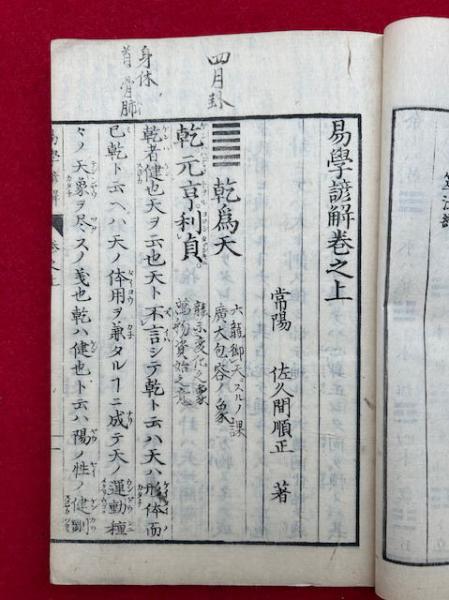 四月卦
身体
首骨肺
易學諺解卷之上
常陽 佐久間順正 著
䷀ 乾爲天
六龍御天スルノ課
廣大包容ノ象
龍示変化之象
萬物資始之意
乾元亨利貞
乾者健也天ヲ云也天ト不言シテ乾ト云ハ天ハ形体而
已乾ト云ヘハ天ノ体用ヲ兼タルヿニ成テ天ノ運動種
々ノ天象ヲ尽スノ義也乾ハ健也ト云ハ陽ノ性ノ健剛
易學諺解 卷之上